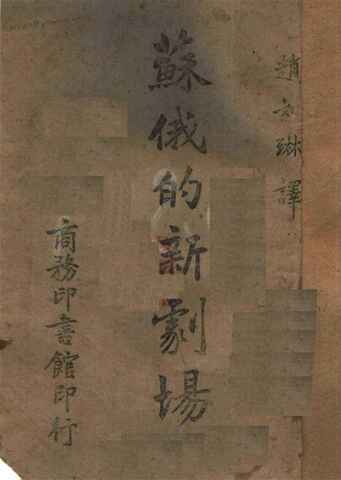 趙如琳譯
蘇俄的新劇場
商務印書館印行